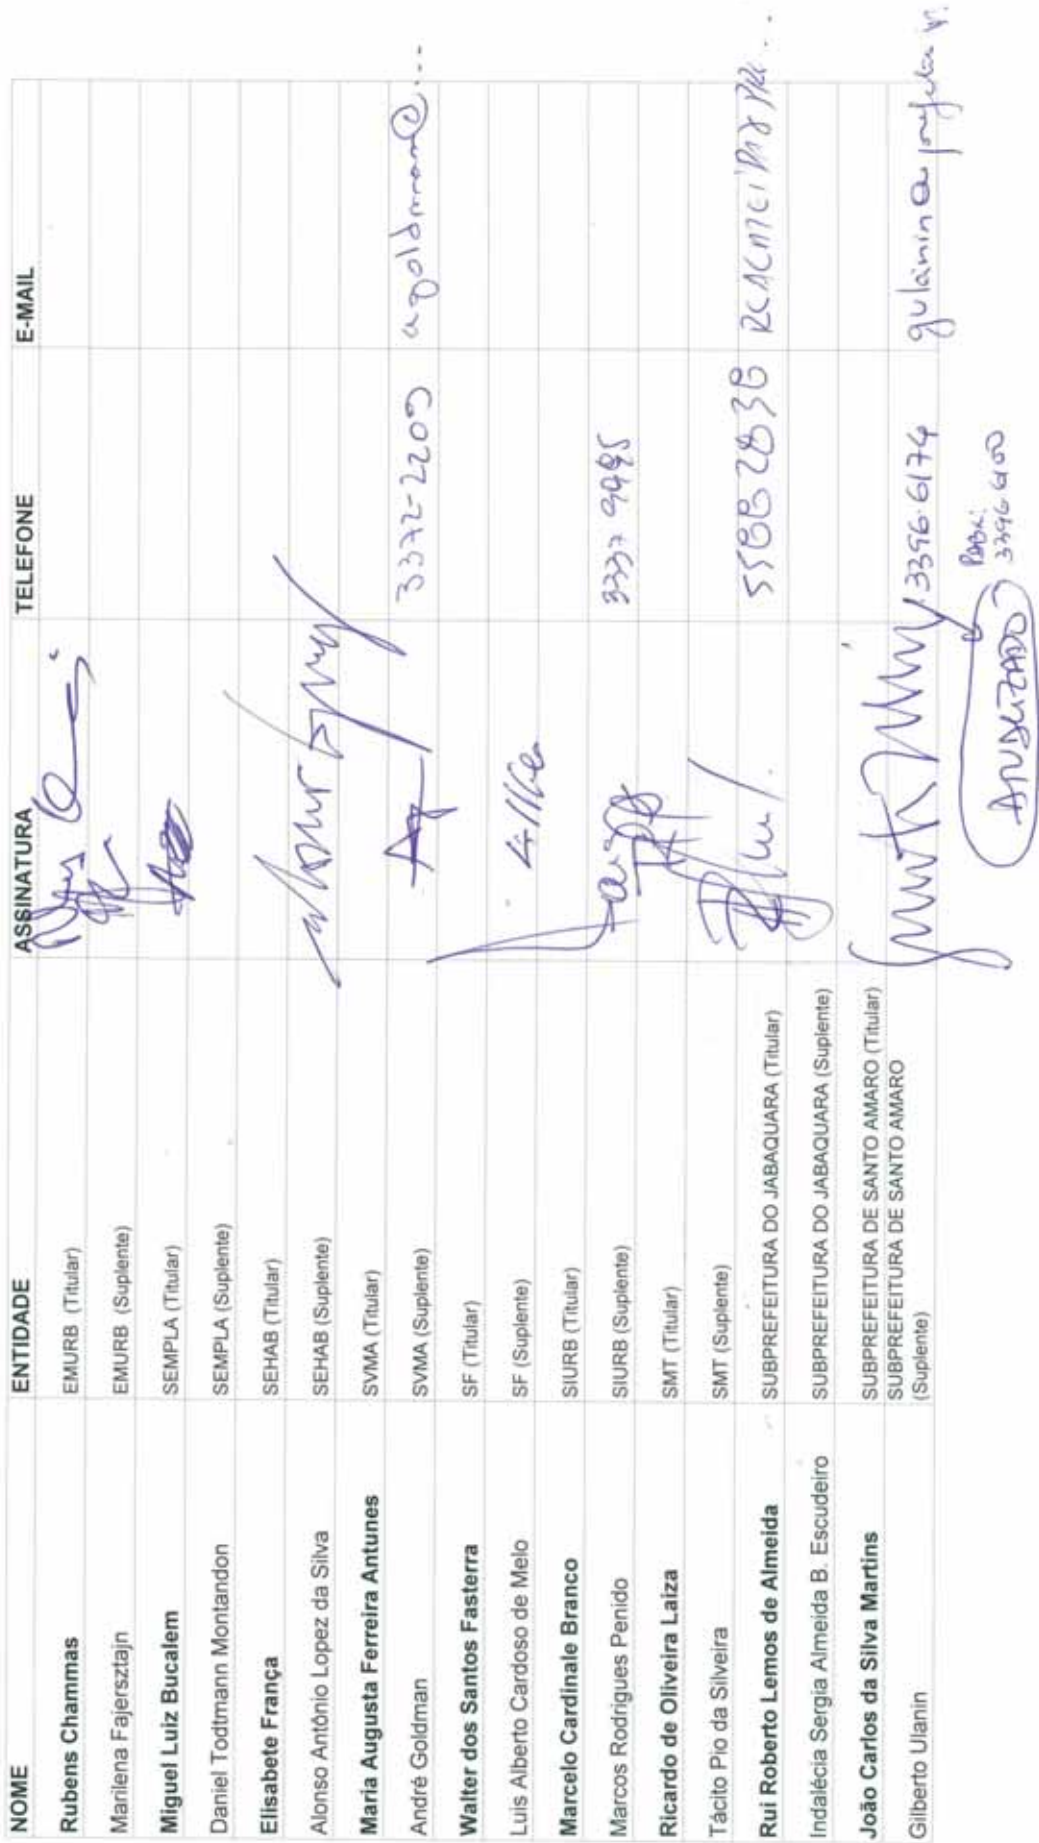 NOME ENTIDADE ASSINATURA TELEFONE E-MAIL
Rubens Chammas EMURB (Titular)
Marilena Fajersztajn EMURB (Suplente)
Miguel Luiz Bucalem SEMPLA (Titular)
Daniel Todtmann Montandon SEMPLA (Suplente)
Elisabete França SEHAB (Titular)
Alonso Antônio Lopez da Silva SEHAB (Suplente)
Maria Augusta Ferreira Antunes SVMA (Titular)
André Goldman SVMA (Suplente) 3372-2209 agoldman@...
Walter dos Santos Fasterra SF (Titular)
Luis Alberto Cardoso de Melo SF (Suplente)
Marcelo Cardinale Branco SIURB (Titular)
Marcos Rodrigues Penido SIURB (Suplente) 3337 9995
Ricardo de Oliveira Laiza SMT (Titular)
Tácito Pio da Silveira SMT (Suplente)
Rui Roberto Lemos de Almeida SUBPREFEITURA DO JABAQUARA (Titular)
Indalécia Sergia Almeida B. Escudeiro SUBPREFEITURA DO JABAQUARA (Suplente)
João Carlos da Silva Martins SUBPREFEITURA DE SANTO AMARO (Titular)
Gilberto Ulanin SUBPREFEITURA DE SANTO AMARO
(Suplente) 3396-6174
3396 6100